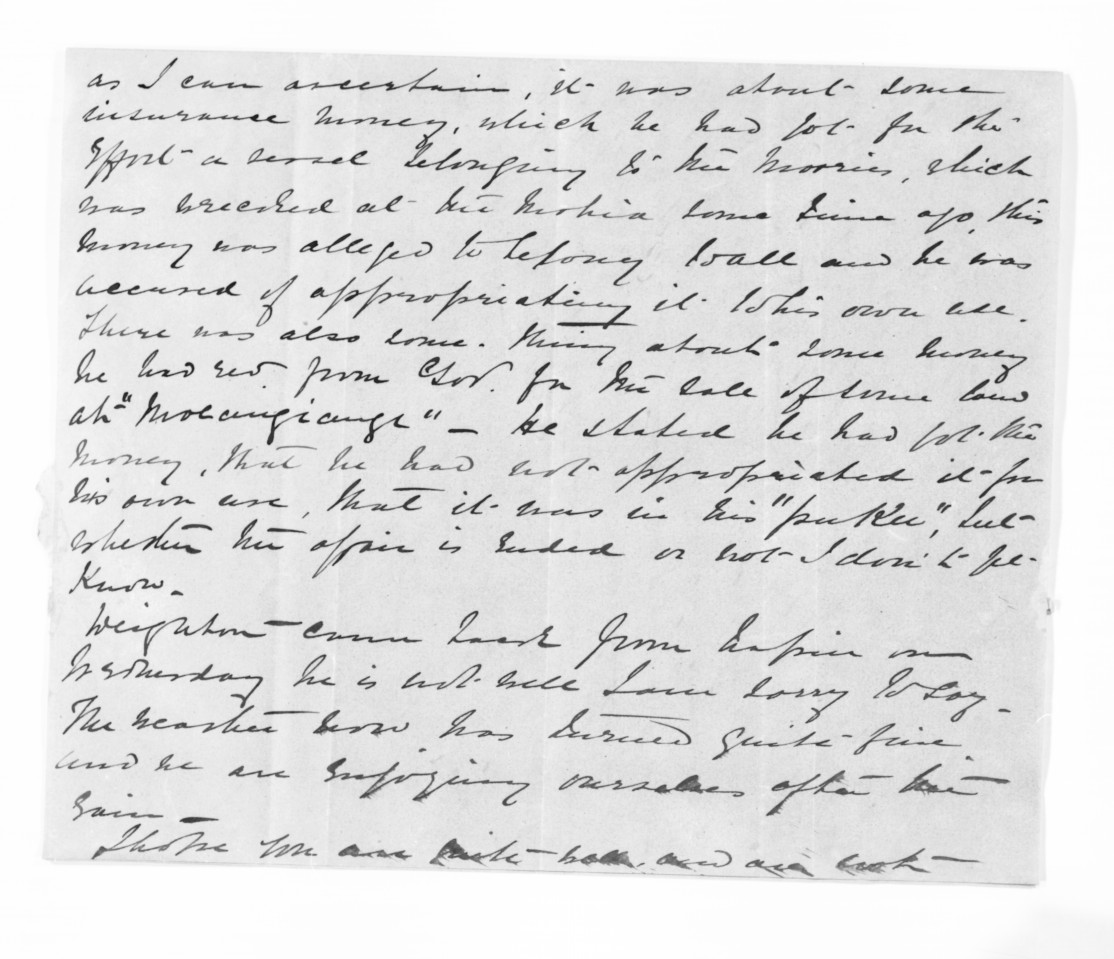 as I can ascertain, it was about some
insurance money, which he had got for the
a vessel belonging to the Maories, which
was wrecked at the Mohia some time ago, this
money was alleged to belong to all and he was
accused of appropriating it to his own use.
There was also some-thing about some money
he had recd. from Govt. for the sale of some land
at "Moeangiangi" — He stated he had got the
money, that he had not appropriated it for
his own use, that it was in his "puku", but
whether the affair is ended or not I don't yet
know.
Weighton came back from Napier on
Wednesday he is not well I am sorry to say.
The weather now has turned quite fine
and we are enjoying ourselves after the
rain —
I hope you are quite well and are not